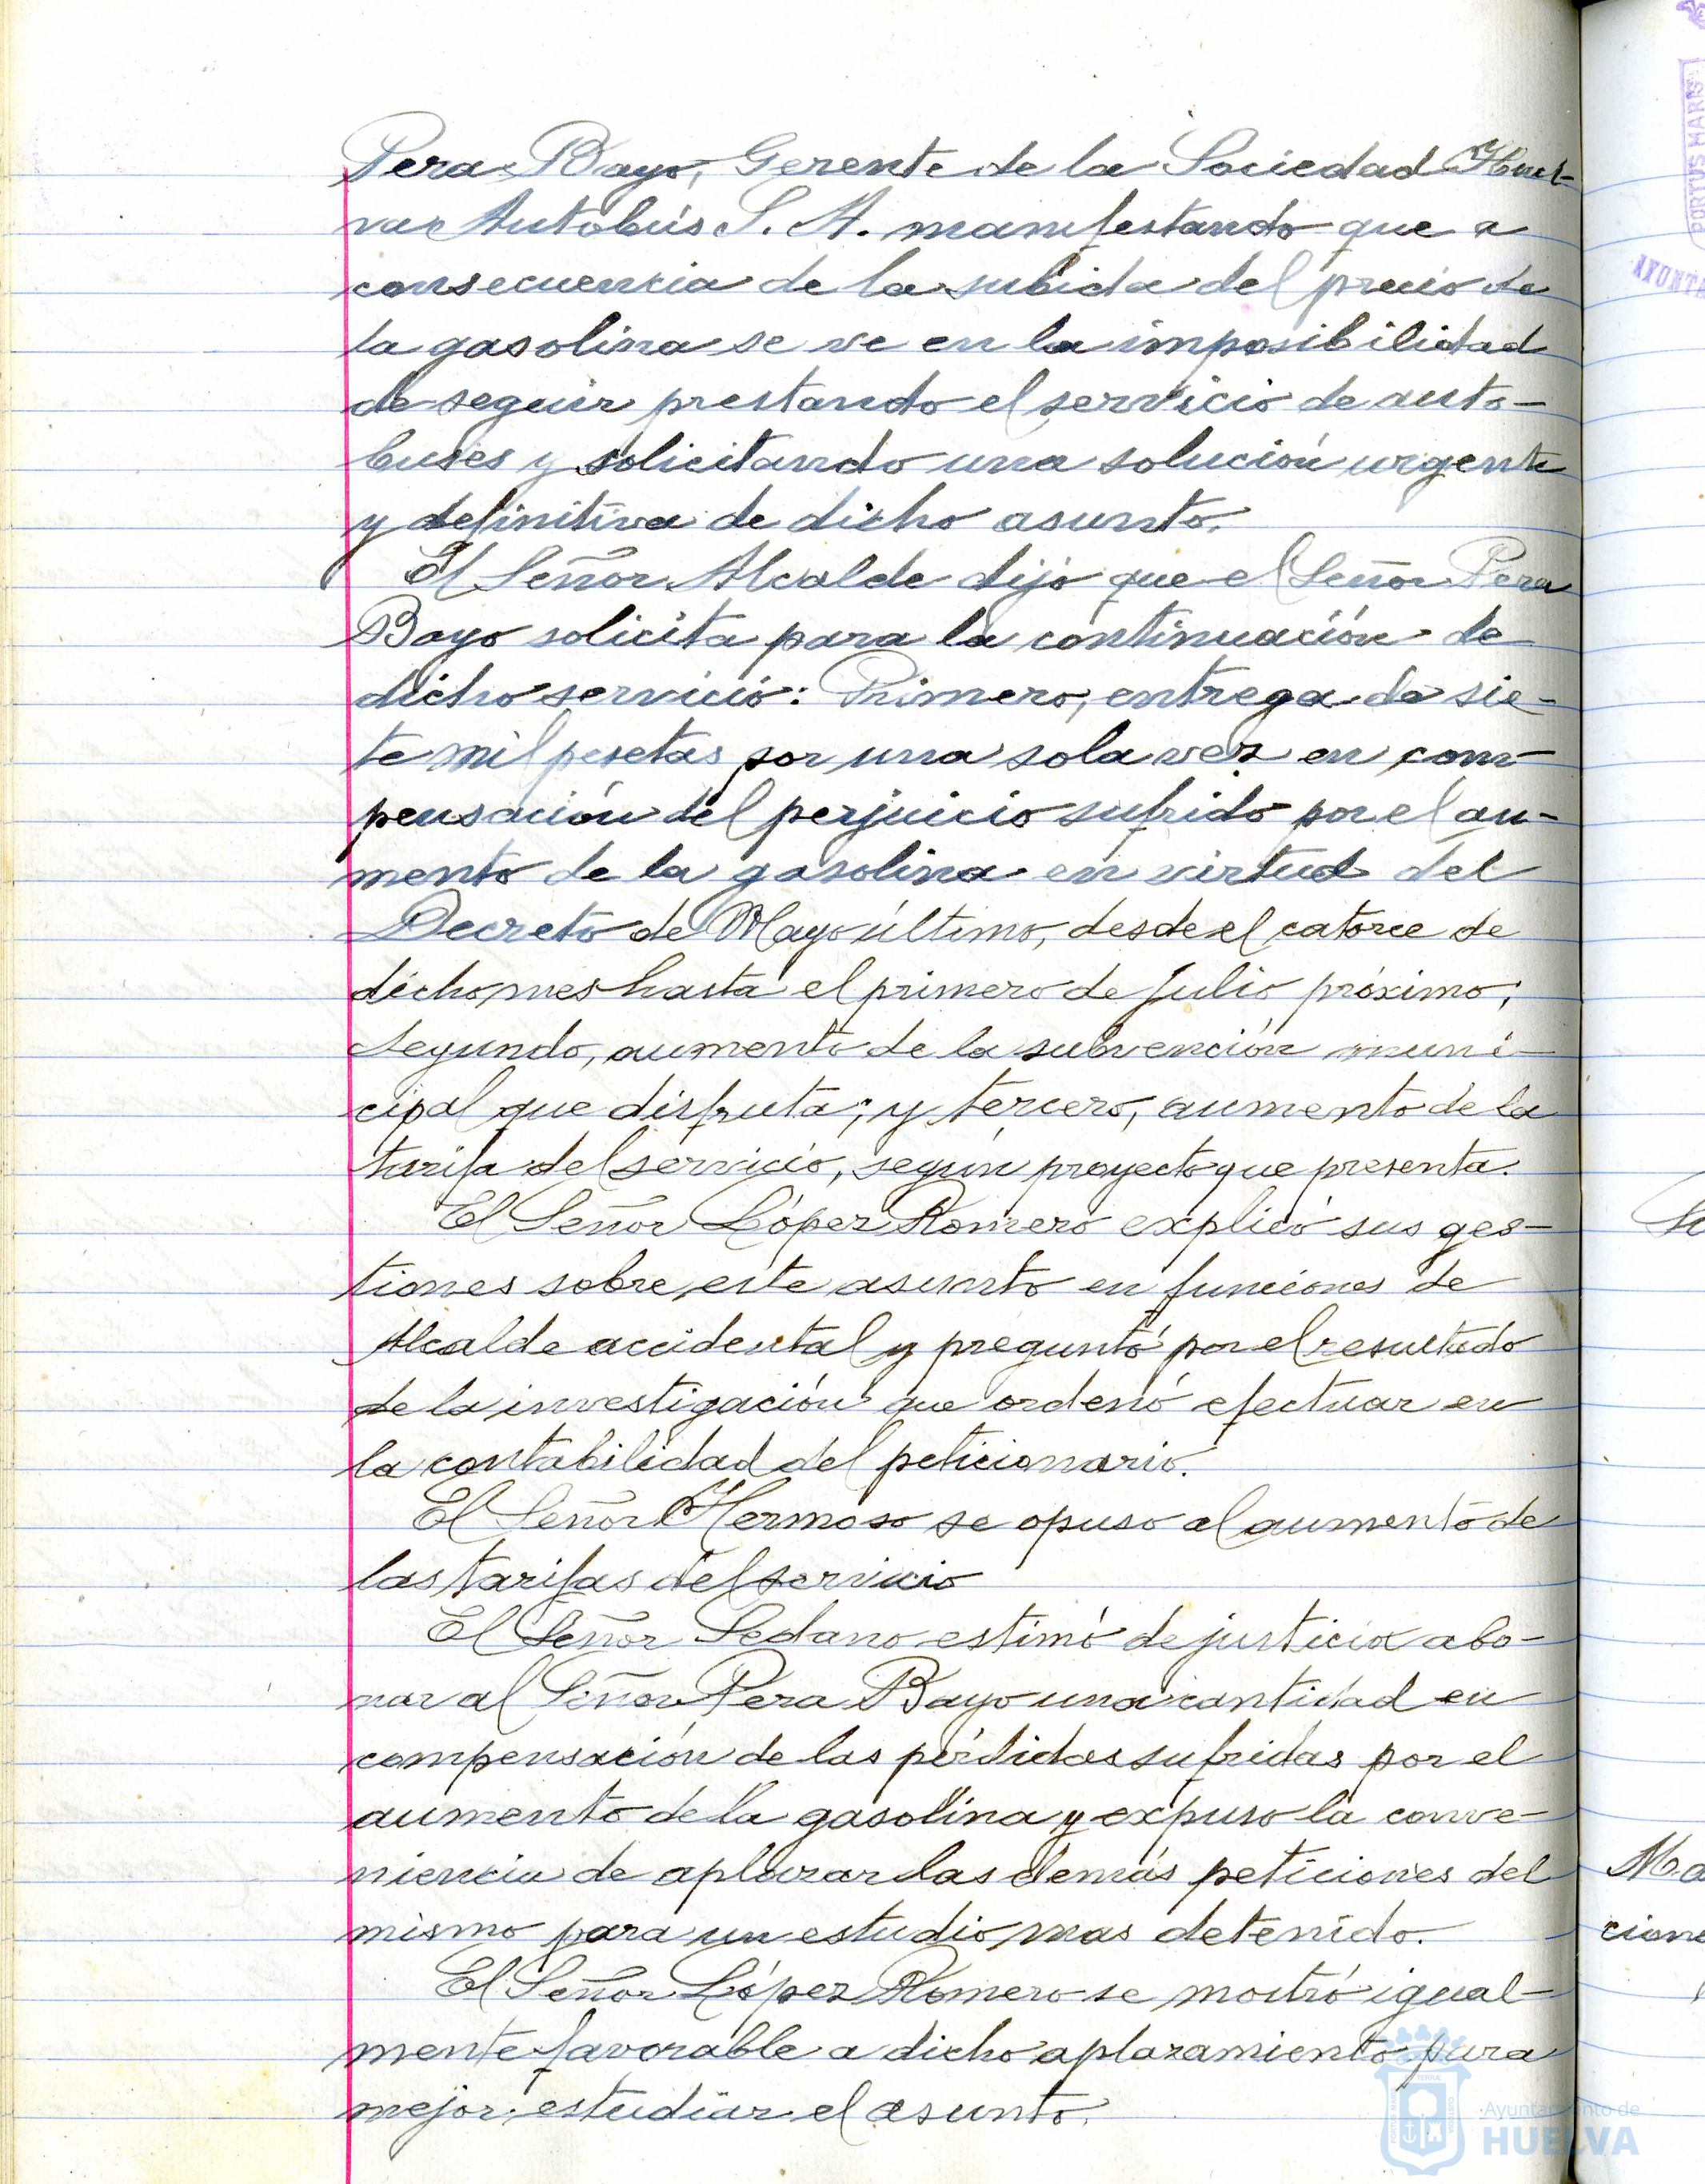 Pera Bayo, Gerente de la Sociedad Huel-
va Autobús S. A. manifestando que a
consecuencia de la subida del precio de
la gasolina se ve en la imposibilidad
de seguir prestando el servicio de auto-
buses y solicitando una solución urgente
y definitiva de dicho asunto.
El Señor Alcalde dijo que el Señor Pera
Bayo solicita para la continuación de
dicho servicio: Primero, entrega de sie-
te mil pesetas por una sola vez en com-
pensación del perjuicio sufrido por el au-
mento de la gasolina en virtud del
Decreto de Mayo último, desde el catorce de
dicho mes hasta el primero de Julio próximo;
Segundo, aumento de la subvención muni-
cipal que disfruta; y tercero, aumento de la
tarifa del servicio, según proyecto que presenta.
El Señor López Romero explicó sus ges-
tiones sobre este asunto en funciones de
Alcalde accidental y preguntó por el resultado
de la investigación que ordenó efectuar en
la contabilidad del peticionario.
El Señor Hermoso se opuso al aumento de
las tarifas del servicio
El Señor Sedano estimó de justicia abo-
nar al Señor Pera Bayo una cantidad en
compensación de las pérdidas sufridas por el
aumento de la gasolina y expuso la conve-
niencia de aplazar las demás peticiones del
mismo para un estudio mas detenido.
El Señor López Romero se mostró igual-
mente favorable a dicho aplazamiento para
mejor estudiar el asunto.
PORTUS MARIS
AYUNTA
Ma
cione
Ayuntamiento de
HUELVA